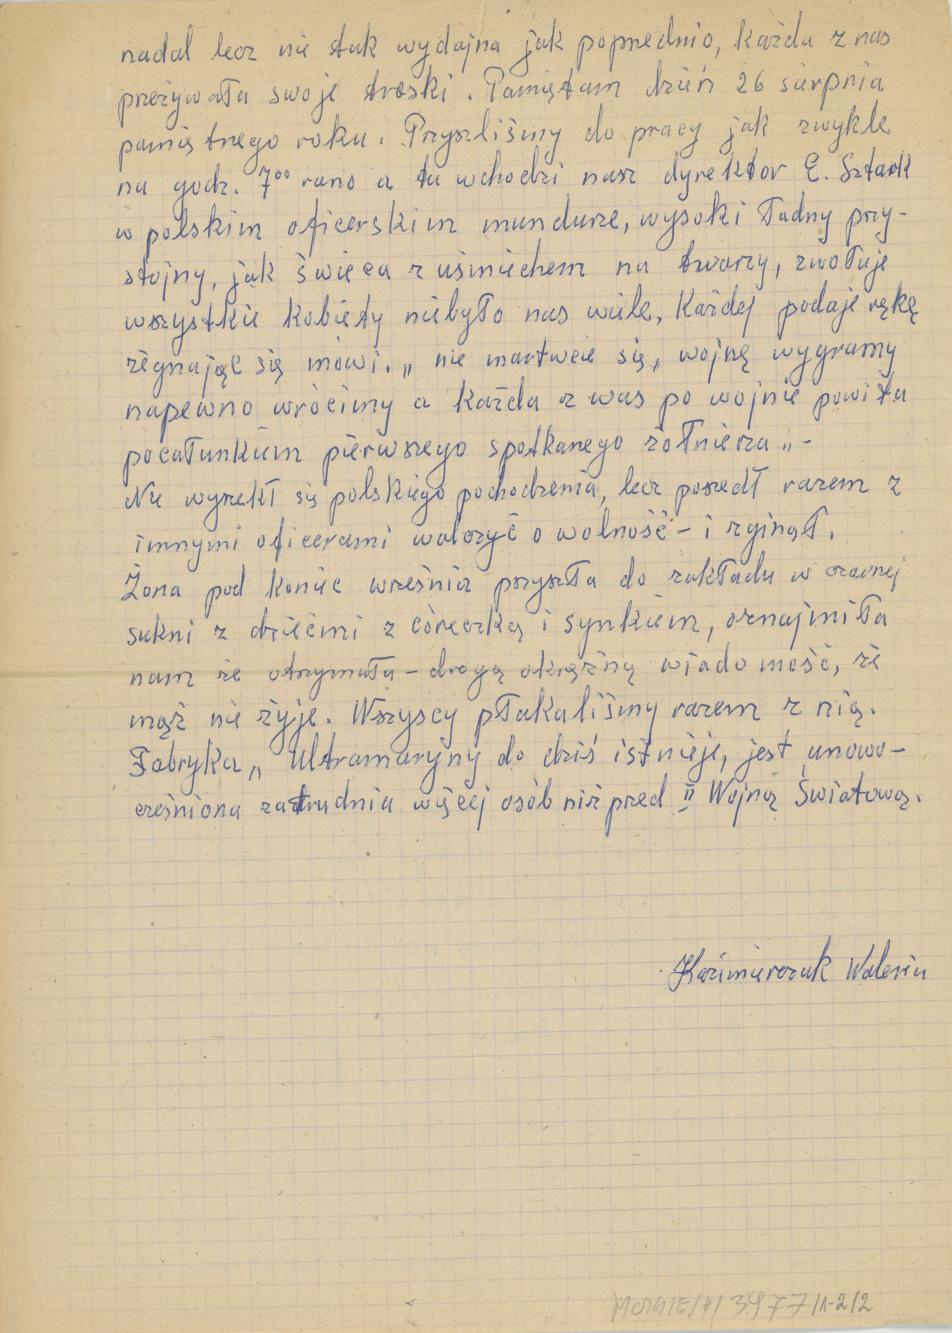 nadal lecz nie tak wydajna jak poprzednio, każda z nas
przeżywała swoje troski. Pamiętam dzień 26 sierpnia
pamiętnego roku. Przyszliśmy do pracy jak zwykle
na godz. 7⁰⁰ rano a tu wchodzi nasz dyrektor E. Sztark
w polskim oficerskim mundurze, wysoki ładny przy-
stojny, jak świeca z uśmiechem na twarzy, zwołuje
wszystkie kobiety niebyło nas wiele, Każdej podaje rękę
żegnając się mówi. „ nie martwcie się, wojnę wygramy
napewno wrócimy a każda z was po wojnie powita
pocałunkiem pierwszego spotkanego żołnierza „-
Nie wyrzekł się polskiego pochodzenia, lecz poszedł razem z
innymi oficerami walczyć o wolność - i zginął.
Żona pod koniec września przyszła do zakładu w czarnej
sukni z dziećmi z córeczką i synkiem, oznajmiła
nam że otrzymała - drogą okrężną wiadomość, że
mąż nie żyje. Wszyscy płakaliśmy razem z nią.
Fabryka „ Ultramaryny do dziś istnieje, jest unowo-
cześniona zatrudnia więcej osób niż przed II Wojną Światową.
Kazimierczuk Waleria
3977/1-2/2